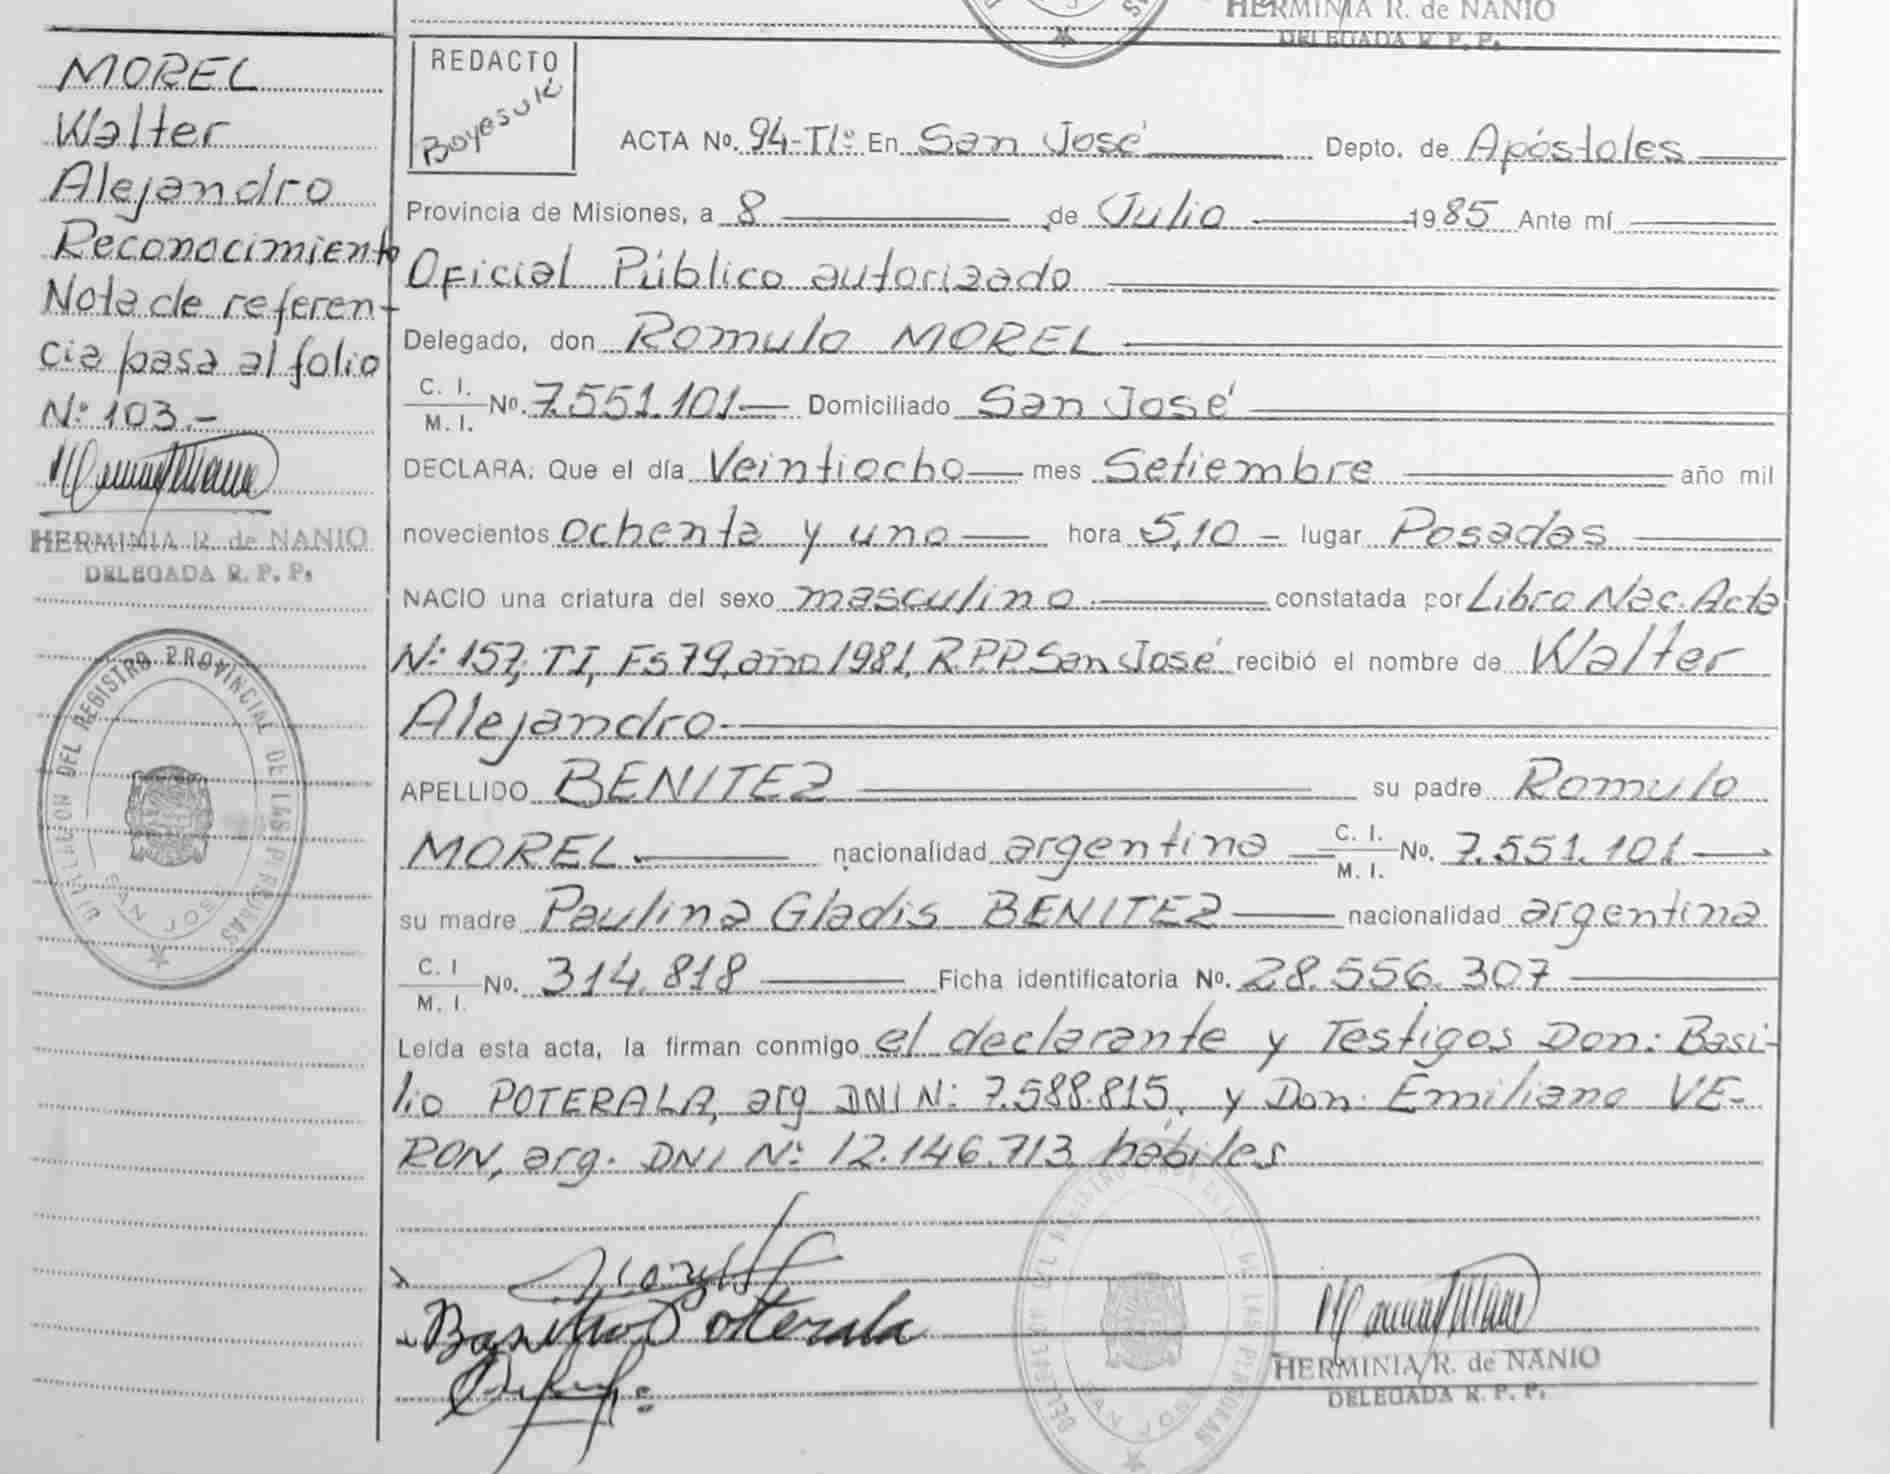 HERMINIA R. de NANIO
DELEGADA R. P. P.
MOREL
Walter
Alejandro
Reconocimiento
Nota de referen-
cia pasa al folio
Nº 103.-
HERMINIA R. de NANIO
DELEGADA R. P. P.
DELEGACION DEL REGISTRO PROVINCIAL DE LAS PERSONAS
SAN JOSE
REDACTO
Boyesuk
ACTA Nº. 94-TIº En San José Depto. de Apóstoles
Provincia de Misiones, a 8 de Julio 1985 Ante mí
Oficial Público autorizado
Delegado, don Romulo MOREL
C. I.
M. I. Nº. 7.551.101 Domiciliado San José
DECLARA: Que el día Veintiocho mes Setiembre año mil
novecientos ochenta y uno hora 5,10 lugar Posadas
NACIO una criatura del sexo masculino constatada por Libro Nac. Acta
Nº 157, TI, Fs 79, año 1981, R.P.P. San José recibió el nombre de Walter
Alejandro
APELLIDO BENITEZ su padre Romulo
MOREL nacionalidad argentina C. I.
M. I. Nº. 7.551.101
su madre Paulina Gladis BENITEZ nacionalidad argentina
C. I
M. I. Nº. 314.818 Ficha identificatoria Nº. 28.556.307
Leída esta acta, la firman conmigo el declarante y Testigos Don: Basi-
lio POTERALA, arg DNI Nº 7.588.815, y Don: Emiliano VE-
RON, arg. DNI Nº 12.146.713 hábiles
Basilio Potterala
DELEGACION DEL REGISTRO PROVINCIAL DE LAS PERSONAS
SAN JOSE
HERMINIA R. de NANIO
DELEGADA R. P. P.